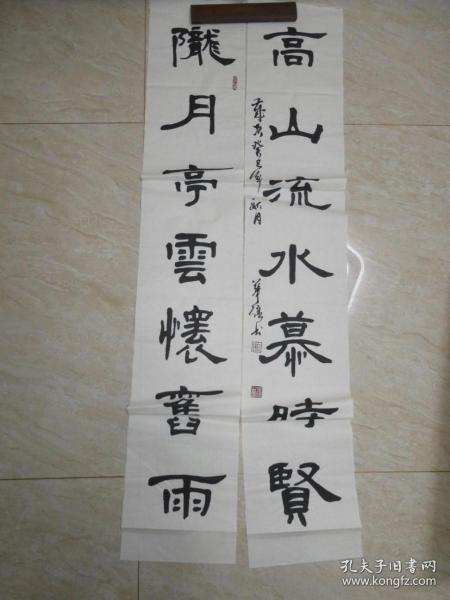 高山流水慕時賢
隴月亭雲懷舊雨
癸巳年秋月
孔夫子旧书网
www.kongfz.com